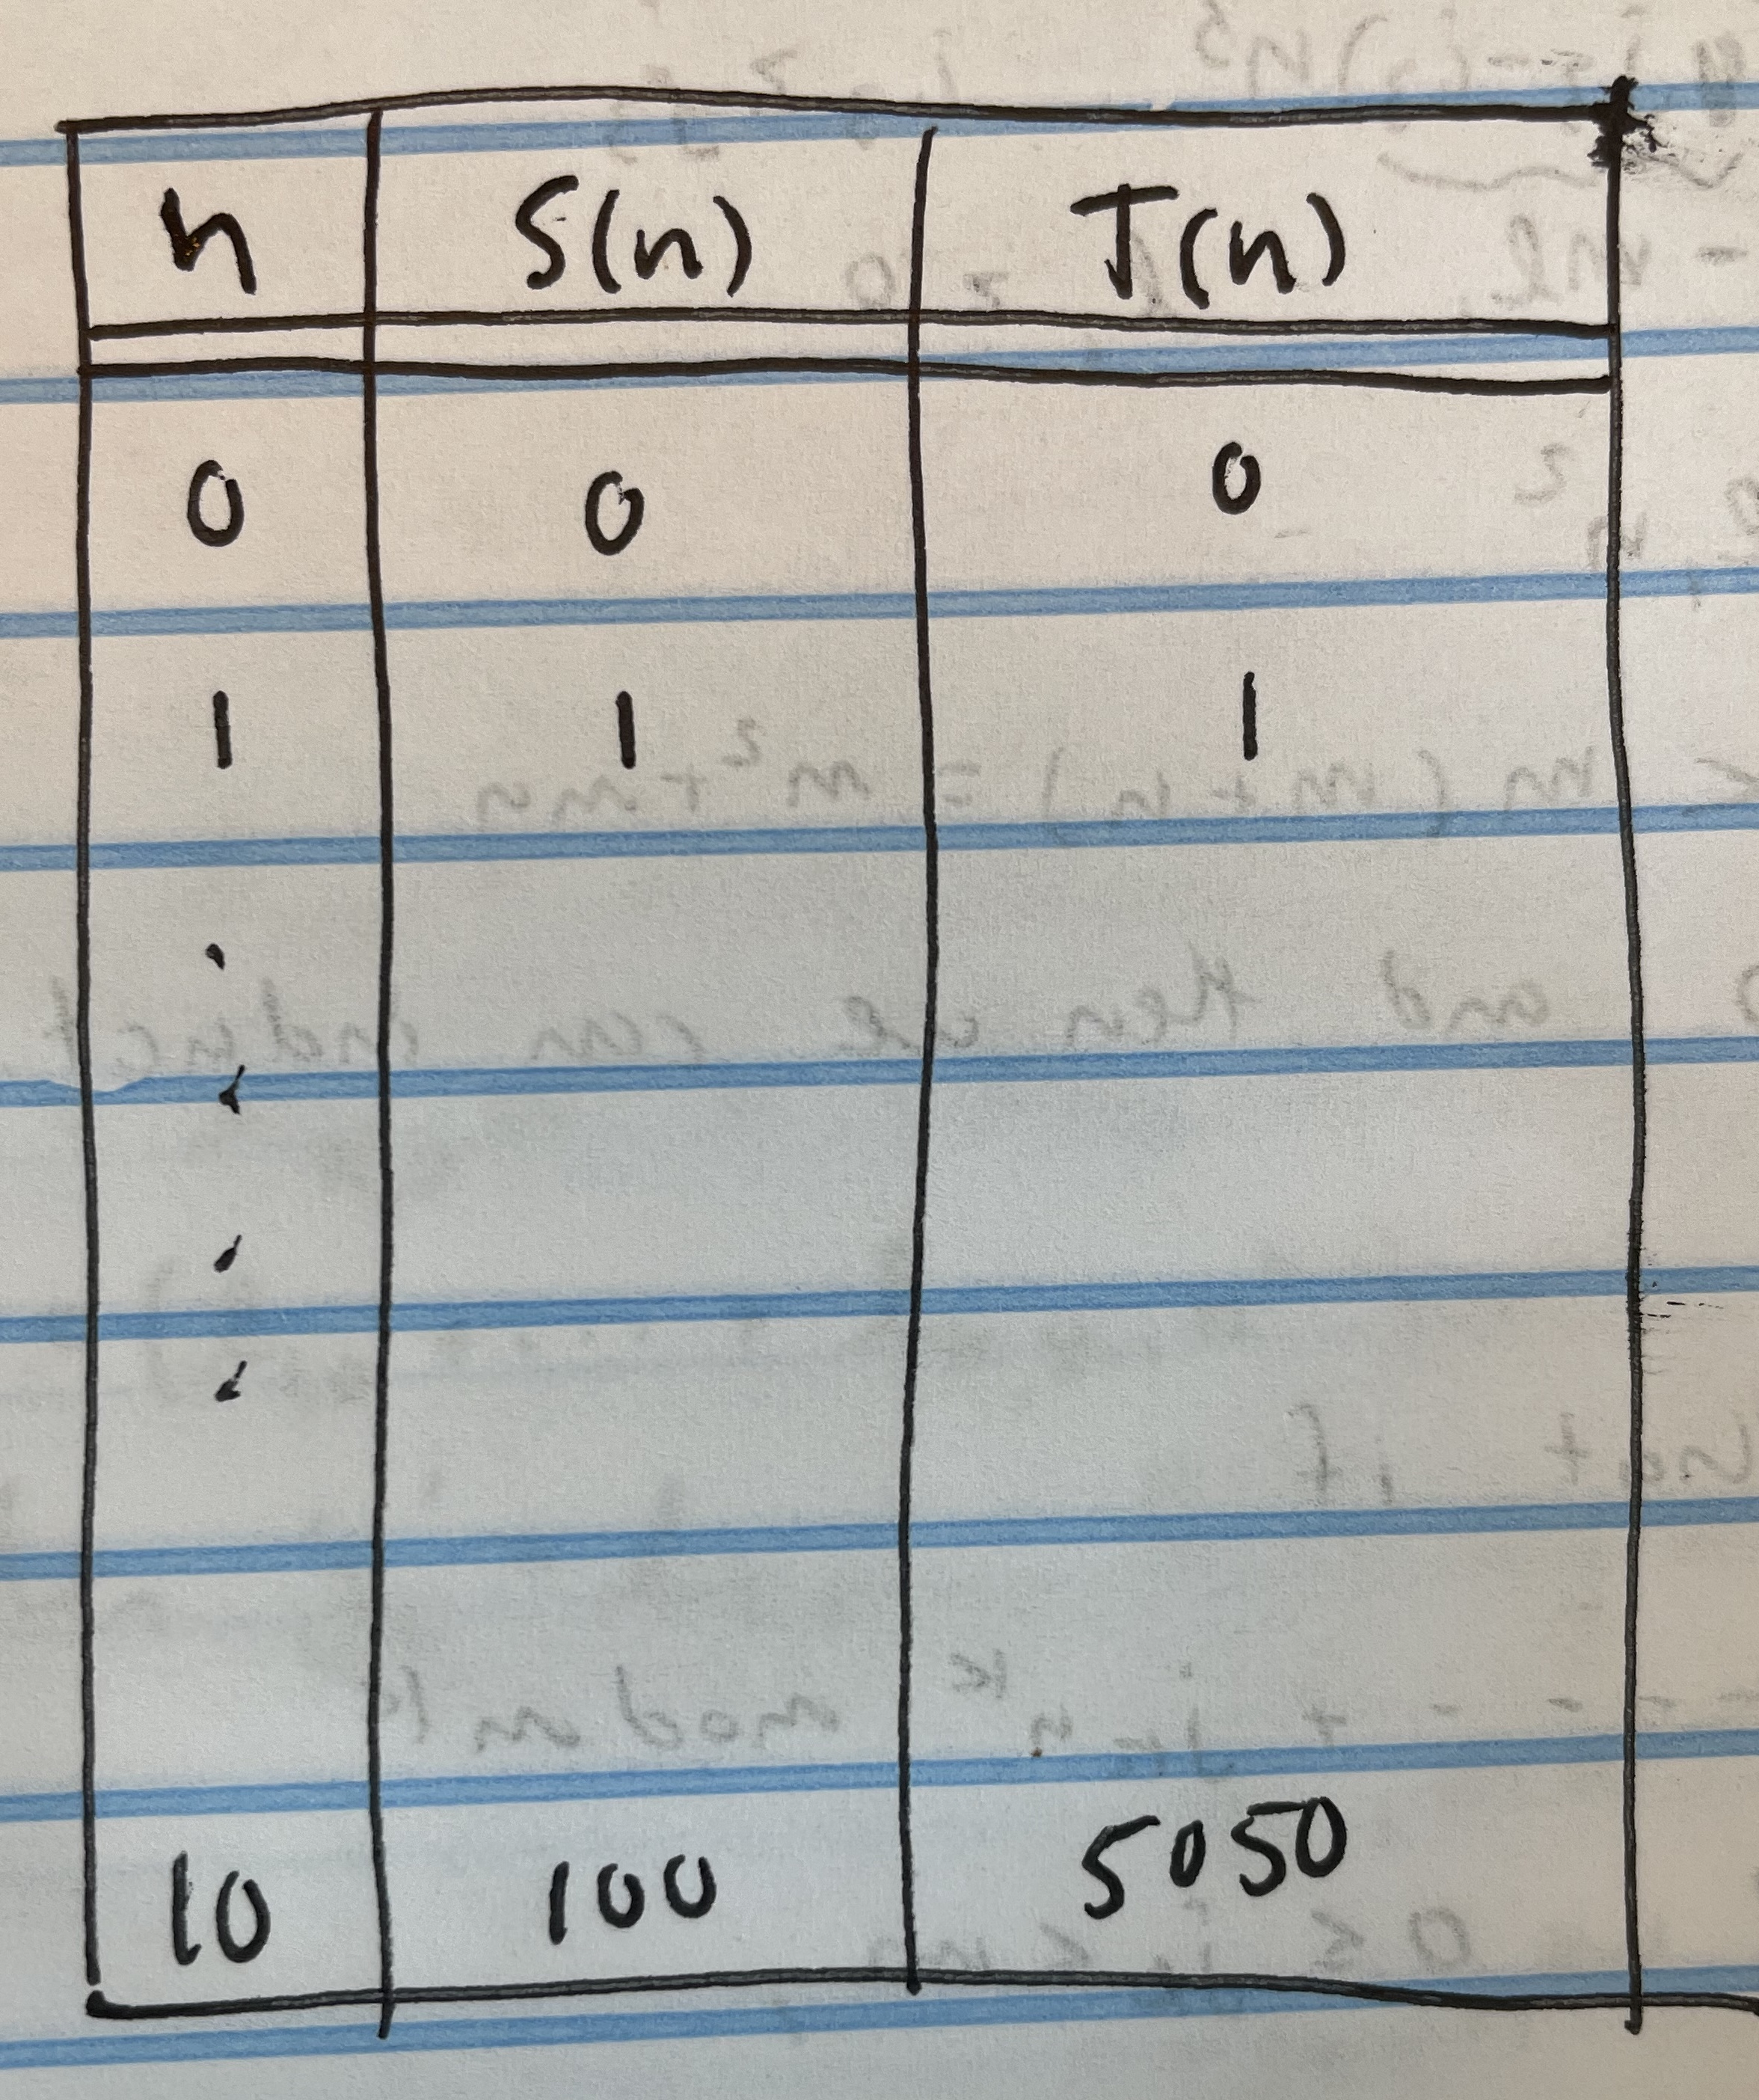 n S(n) T(n)
0 0 0
1 1 1
.
.
.
.
10 100 5050